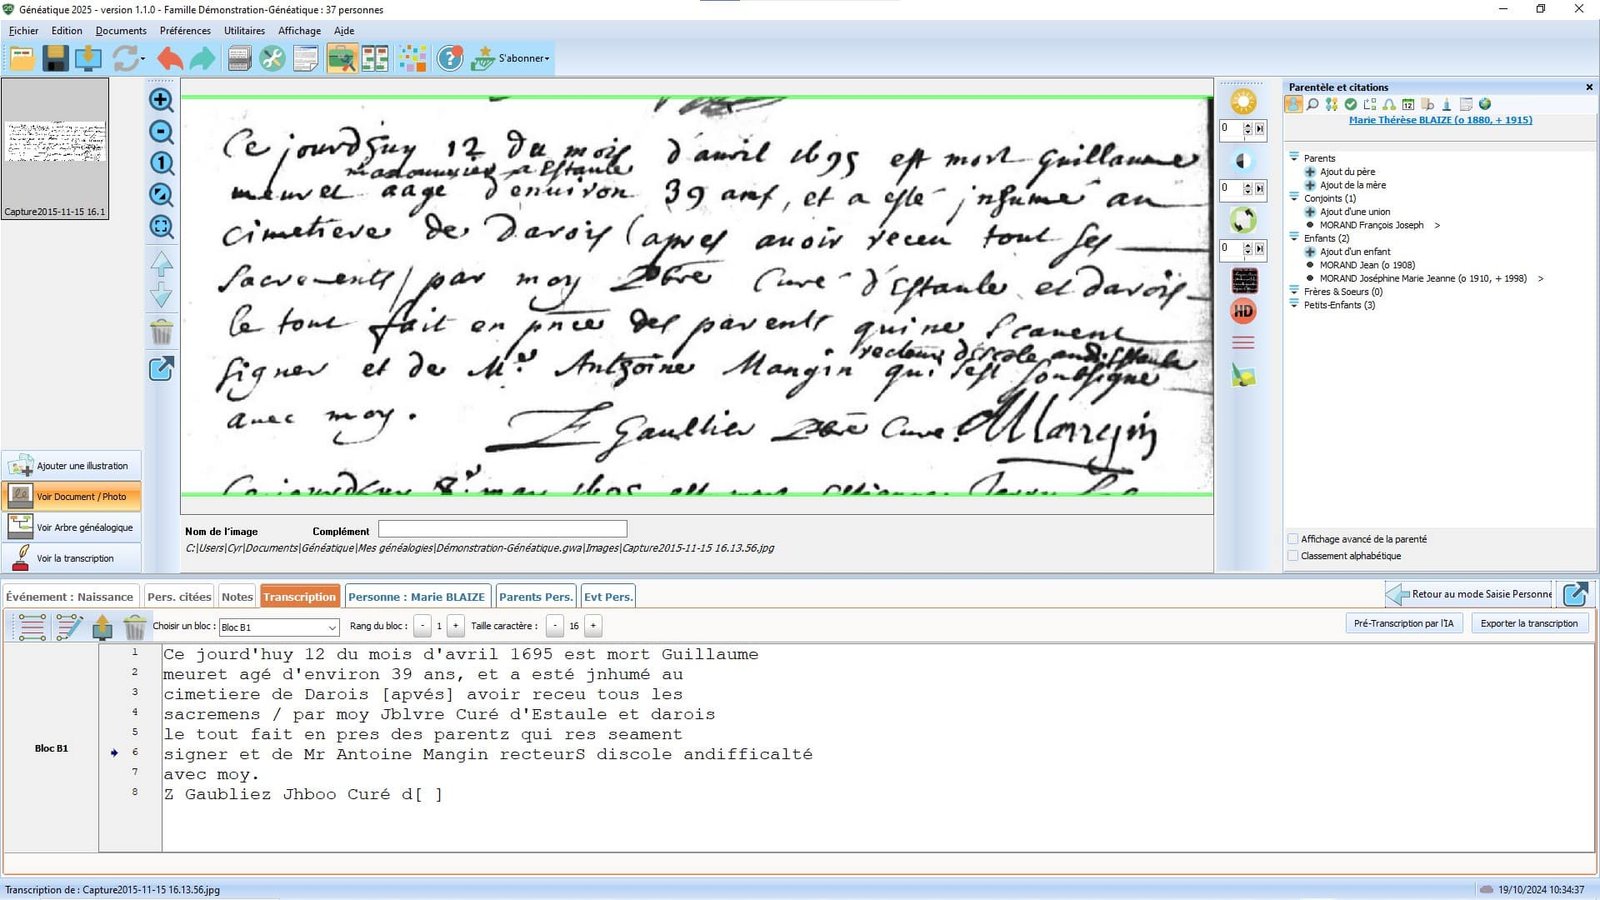 Généatique 2025 - version 1.1.0 - Famille Démonstration-Généatique : 37 personnes
Fichier Edition Documents Préférences Utilitaires Affichage Aide
S'abonner
Capture2015-11-15 16.1
Ajouter une illustration
Voir Document / Photo
Voir Arbre généalogique
Voir la transcription
Ce jourdhuy 12 du mois d'auril 1695 est mort Guillaume
manouurier a Estaule
meuret aagé d'enuiron 39 ans, et a esté inhumé au
cimetiere de Darois (apres auoir receu tout ses
sacrements) par moy pbre Curé d'Estaule et darois
le tout fait en pnce des parents qui ne scauent
recteur d'escole audit Estaule
signer et de Mr Anthoine Mangin qui s'est soubsigné
auec moy.
Gaultier pbre Curé. Mangin
Ce jourdhuy 8r may 1695 est mort
Nom de l'image Complément
C:\Users\Cyr\Documents\Généatique\Mes généalogies\Démonstration-Généatique.gwa\Images\Capture2015-11-15 16.13.56.jpg
0
0
0
HD
Parentèle et citations
12
Marie Thérèse BLAIZE (o 1880, + 1915)
Parents
Ajout du père
Ajout de la mère
Conjoints (1)
Ajout d'une union
MORAND François Joseph >
Enfants (2)
Ajout d'un enfant
MORAND Jean (o 1908)
MORAND Joséphine Marie Jeanne (o 1910, + 1998) >
Frères & Soeurs (0)
Petits-Enfants (3)
Affichage avancé de la parenté
Classement alphabétique
Événement : Naissance Pers. citées Notes Transcription Personne : Marie BLAIZE Parents Pers. Evt Pers.
Retour au mode Saisie Personne
Choisir un bloc : Bloc B1 Rang du bloc : - 1 + Taille caractère : - 16 +
Pré-Transcription par l'IA Exporter la transcription
Bloc B1
1 Ce jourd'huy 12 du mois d'avril 1695 est mort Guillaume
2 meuret agé d'environ 39 ans, et a esté jnhumé au
3 cimetiere de Darois [apvés] avoir receu tous les
4 sacremens / par moy Jblvre Curé d'Estaule et darois
5 le tout fait en pres des parentz qui res seament
6 signer et de Mr Antoine Mangin recteurS discole andifficalté
7 avec moy.
8 Z Gaubliez Jhboo Curé d[ ]
Transcription de : Capture2015-11-15 16.13.56.jpg
19/10/2024 10:34:37